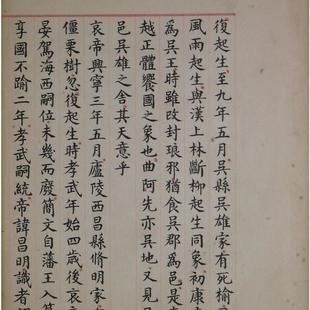 復起生至九年五月吳縣吳雄家有死榆
風雨起生與漢上林斷柳起生同象初康
為吳王時雖改封琅邪猶食吳郡為邑是
越正體饗國之象也曲阿先亦吳地又見
邑吳雄之舍其天意乎
哀帝興寧三年五月廬陵西昌縣脩明家
僵栗樹忽復起生時孝武年始四歲後哀
晏駕海西嗣位未幾而廢簡文自藩王入
享國不踰二年孝武嗣統帝諱昌明識者